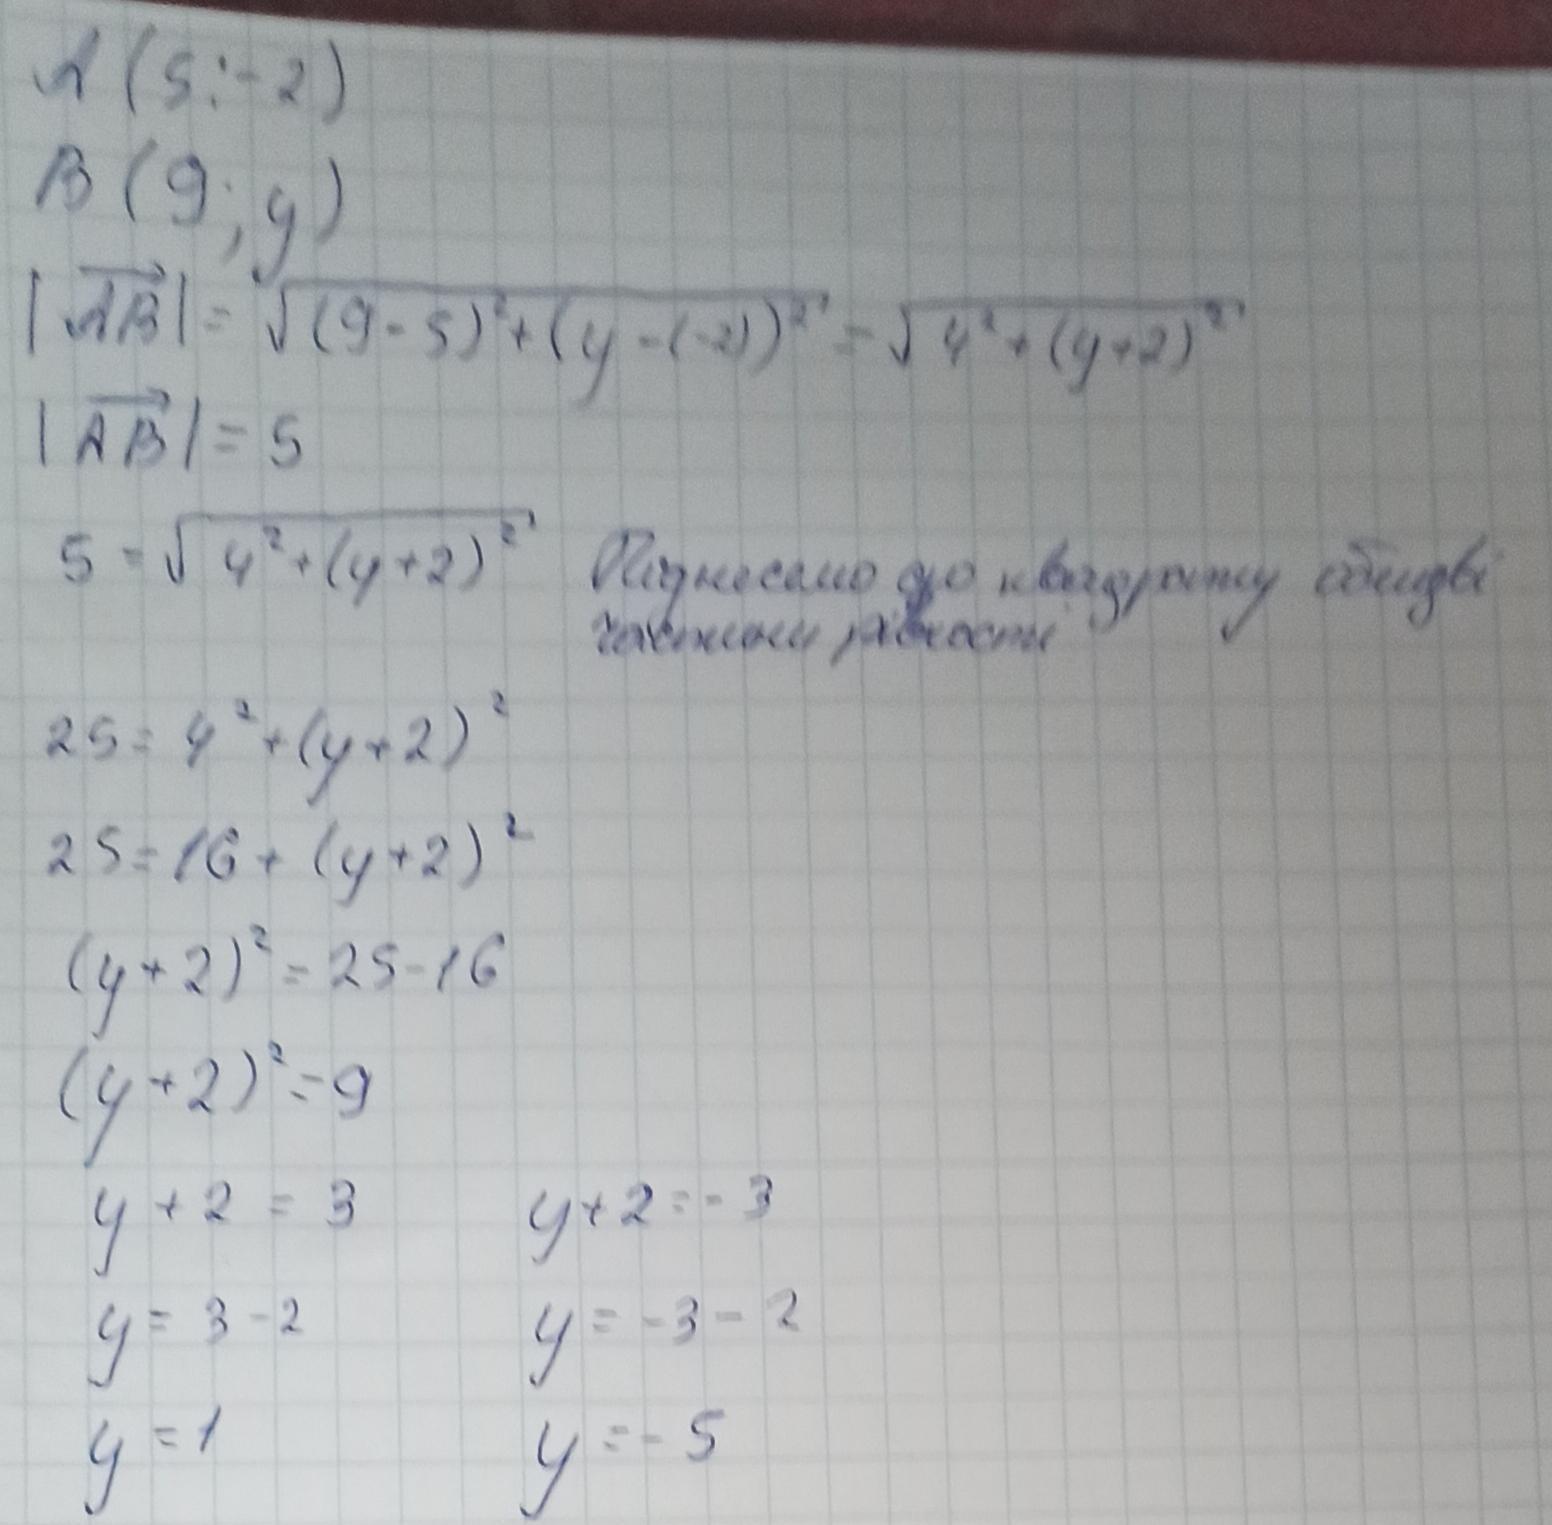 A (5; -2)
B (9; y)
|AB| = √(9-5)² + (y-(-2))² = √4² + (y+2)²
|AB| = 5
5 = √4² + (y+2)² Піднесемо до квадрату обидві
частини рівності
25 = 4² + (y+2)²
25 = 16 + (y+2)²
(y+2)² = 25-16
(y+2)² = 9
y + 2 = 3 y + 2 = -3
y = 3 - 2 y = -3 - 2
y = 1 y = -5